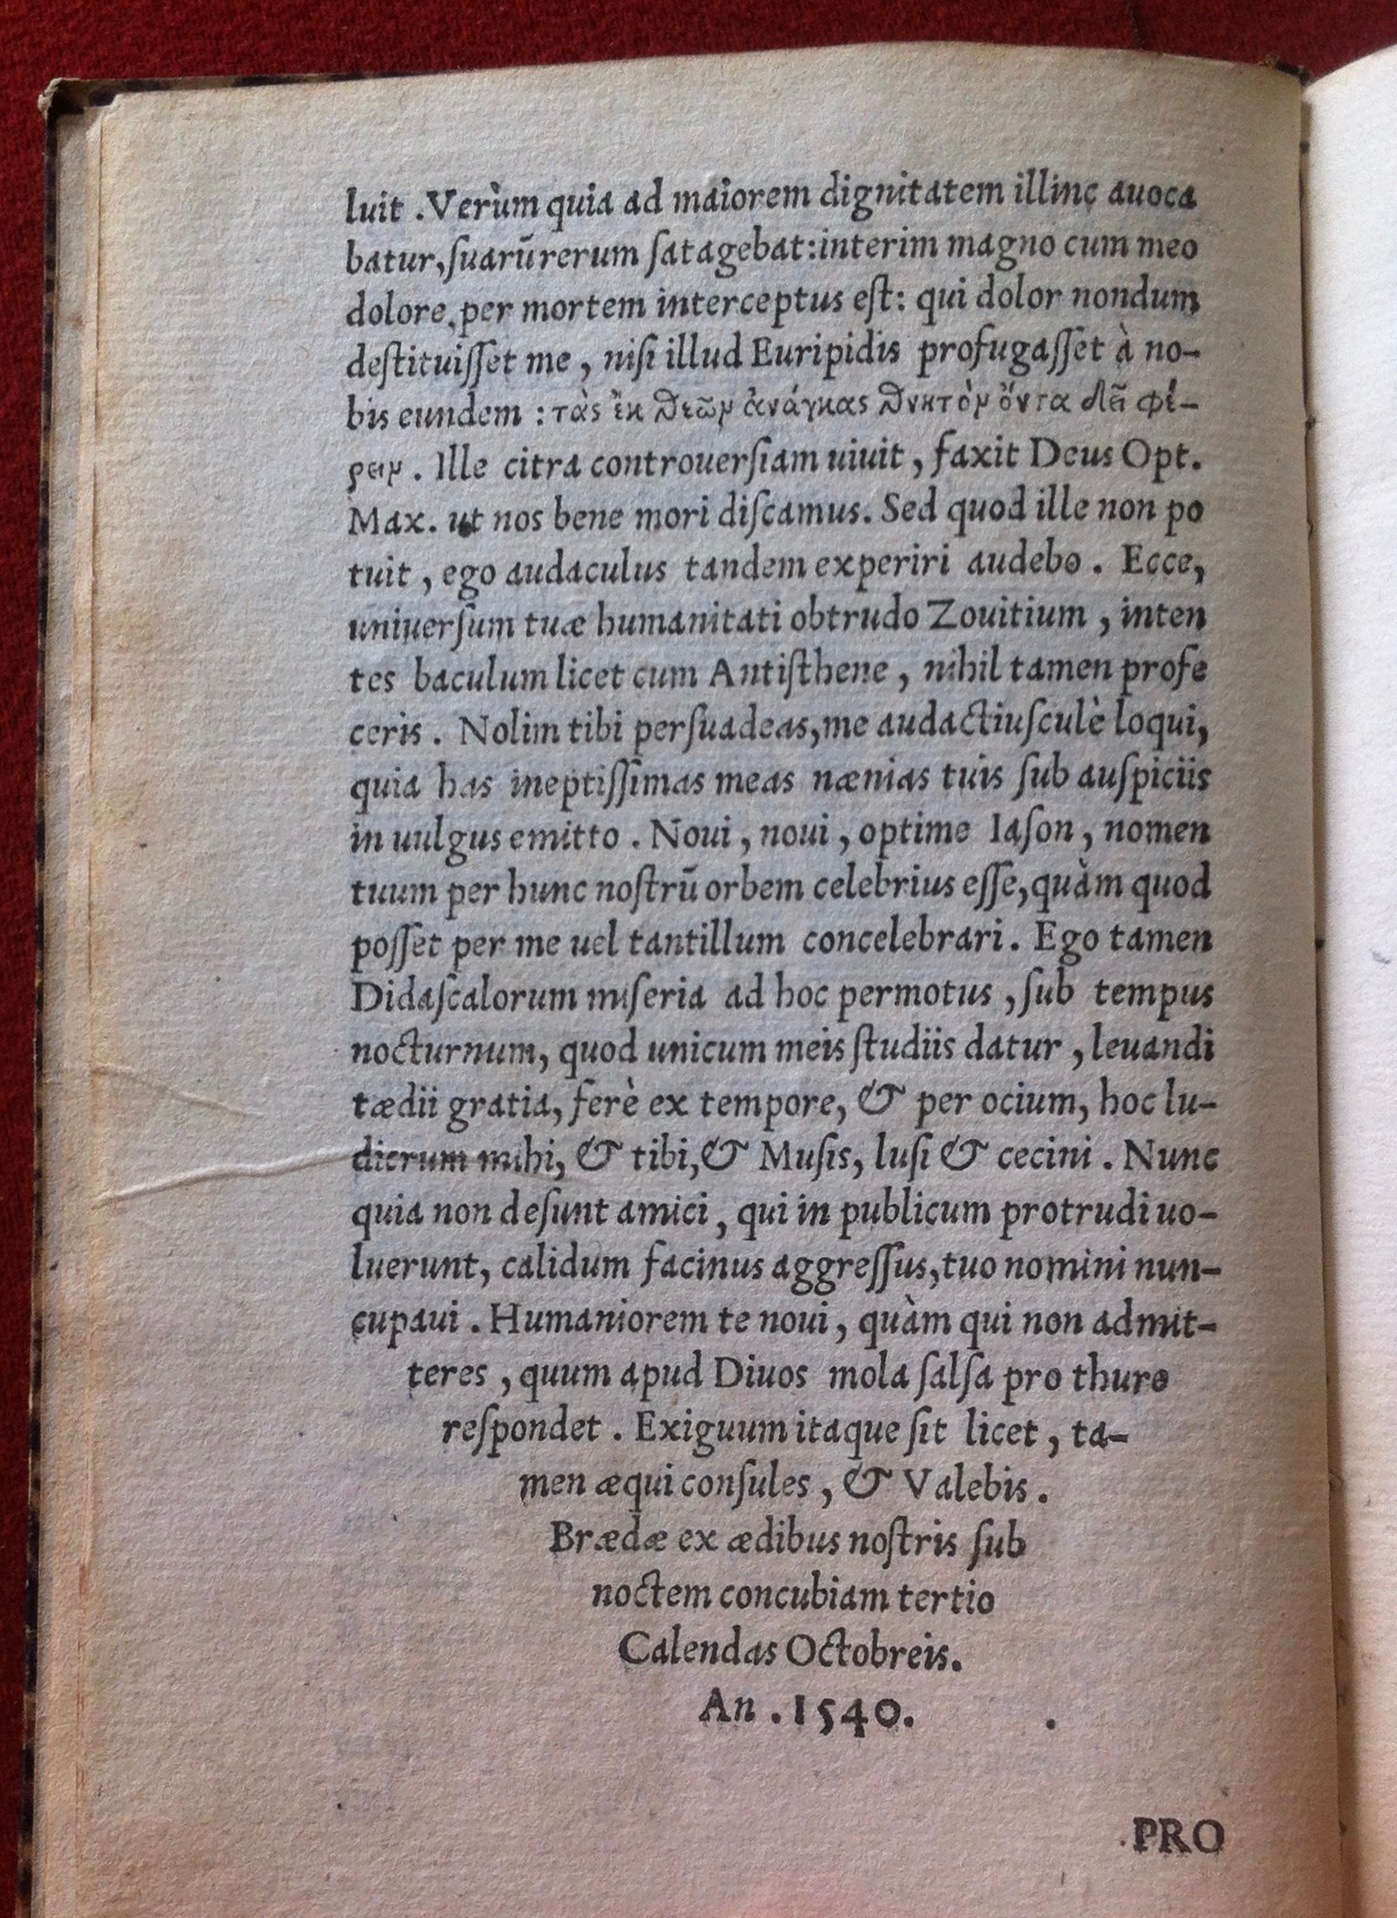 luit .Verùm quia ad maiorem dignitatem illinc auoca
batur,ſuarūrerum ſatagebat:interim magno cum meo
dolore,per mortem interceptus eſt: qui dolor nondum
deſtituiſſet me , niſi illud Euripidis profugaſſet à no-
bis eundem : τὰς ἐκ θεῶν ἀνάγκας θνητὸν ὄντα δεῖ φέ-
ρειν . Ille citra controuerſiam uiuit , faxit Deus Opt.
Max. ut nos bene mori diſcamus. Sed quod ille non po
tuit , ego audaculus tandem experiri audebo . Ecce,
uniuerſum tuæ humanitati obtrudo Zouitium , inten
tes baculum licet cum Antiſthene , nihil tamen profe
ceris . Nolim tibi perſuadeas,me audactiuſculè loqui,
quia has ineptiſſimas meas nænias tuis ſub auſpiciis
in uulgus emitto . Noui , noui , optime Iaſon , nomen
tuum per hunc noſtrū orbem celebrius eſſe,quàm quod
poſſet per me uel tantillum concelebrari . Ego tamen
Didaſcalorum miſeria ad hoc permotus , ſub tempus
nocturnum, quod unicum meis ſtudiis datur , leuandi
tædii gratia, ferè ex tempore, & per ocium, hoc lu-
dicrum mihi, & tibi,& Muſis, luſi & cecini . Nunc
quia non deſunt amici , qui in publicum protrudi uo-
luerunt, calidum facinus aggreſſus,tuo nomini nun-
cupaui . Humaniorem te noui , quàm qui non admit-
teres , quum apud Diuos mola ſalſa pro thure
reſpondet . Exiguum itaque ſit licet , ta-
men æqui conſules , & Valebis .
Brædæ ex ædibus noſtris ſub
noctem concubiam tertio
Calendas Octobreis.
An . 1540.
PRO